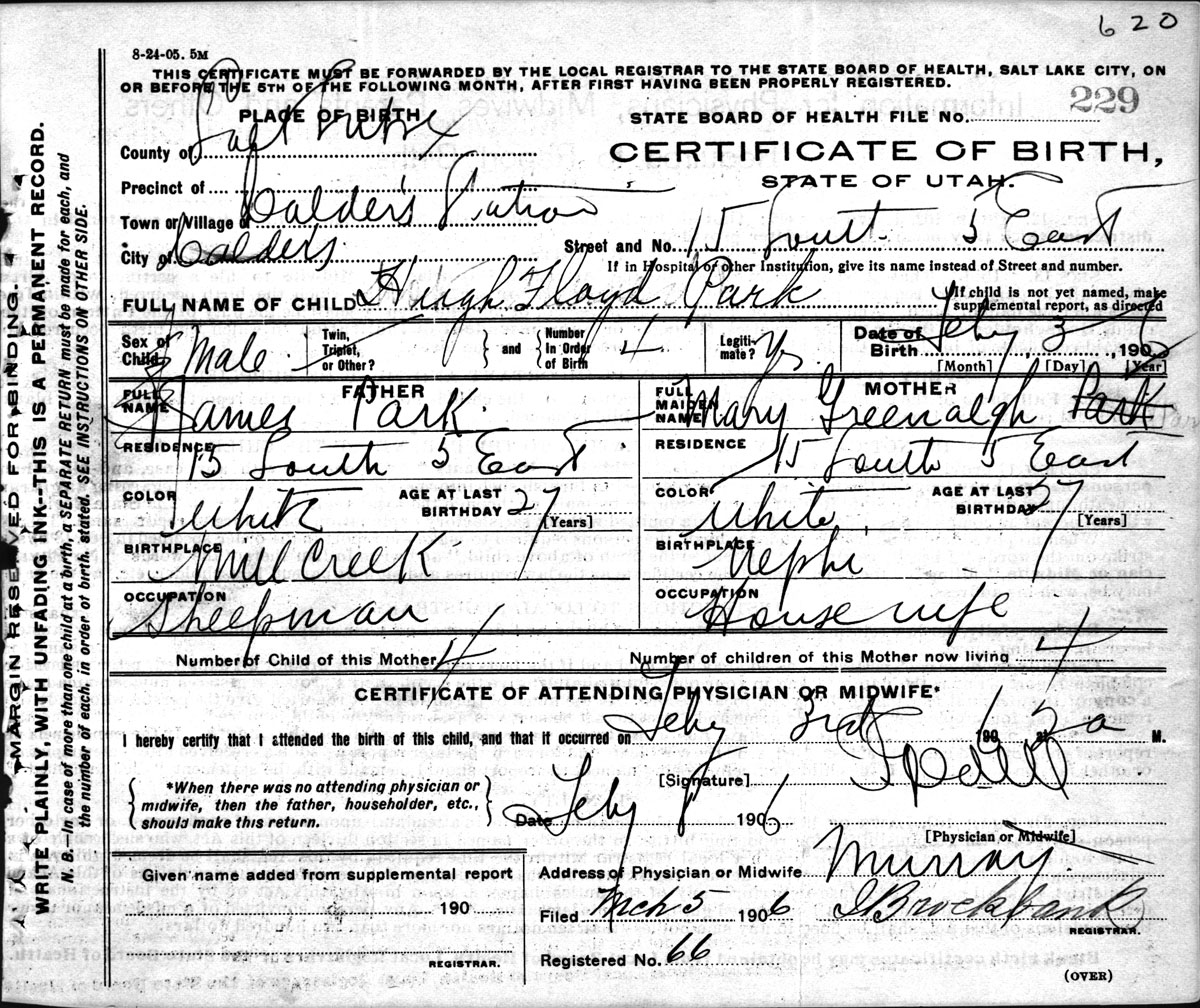 620
8-24-05. 5M
THIS CERTIFICATE MUST BE FORWARDED BY THE LOCAL REGISTRAR TO THE STATE BOARD OF HEALTH, SALT LAKE CITY, ON
OR BEFORE THE 5TH OF THE FOLLOWING MONTH, AFTER FIRST HAVING BEEN PROPERLY REGISTERED.
PLACE OF BIRTH
STATE BOARD OF HEALTH FILE No. 229
County of Salt Lake
CERTIFICATE OF BIRTH,
STATE OF UTAH.
Precinct of
Town or Village of Calder's Station
City of Calders
Street and No. 15 South 5 East
If in Hospital or other Institution, give its name instead of Street and number.
FULL NAME OF CHILD Hugh Floyd Park
If child is not yet named, make
supplemental report, as directed
Sex of Child Male
Twin, Triplet, or Other?
and
Number in Order of Birth 4
Legitimate? Ys
Date of Birth Feby 3, 190
[Month] [Day] [Year]
FATHER
FULL NAME James Park
MOTHER
FULL MAIDEN NAME Mary Greenalgh Park
RESIDENCE 15 South 5 East
RESIDENCE 15 South 5 East
COLOR White AGE AT LAST BIRTHDAY 27 [Years]
COLOR White AGE AT LAST BIRTHDAY 27 [Years]
BIRTHPLACE Mill Creek
BIRTHPLACE Nephi
OCCUPATION Sheepman
OCCUPATION House wife
Number of Child of this Mother 4
Number of children of this Mother now living 4
CERTIFICATE OF ATTENDING PHYSICIAN OR MIDWIFE*
I hereby certify that I attended the birth of this child, and that it occurred on Feby 3rd 1906, at 2 a M.
*When there was no attending physician or
midwife, then the father, householder, etc.,
should make this return.
[Signature]
Date Feby 1906
[Physician or Midwife]
Given name added from supplemental report
190
REGISTRAR.
Address of Physician or Midwife Murray
Filed Mch 5 1906 Brockbank
REGISTRAR.
Registered No. 66
(OVER)
MARGIN RESERVED FOR BINDING.
WRITE PLAINLY, WITH UNFADING INK--THIS IS A PERMANENT RECORD.
N. B.—In case of more than one child at a birth, a SEPARATE RETURN must be made for each, and
the number of each, in order of birth, stated. SEE INSTRUCTIONS ON OTHER SIDE.